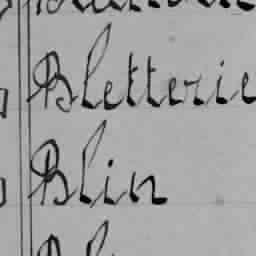 Bletterie
Blin